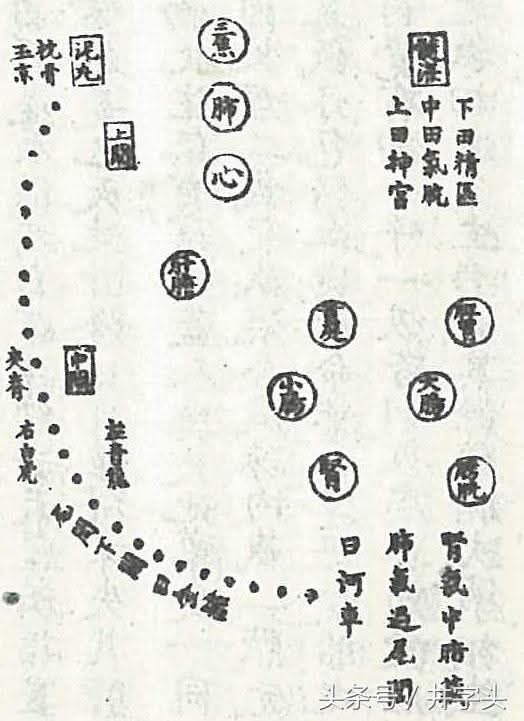 髓海
下田精區
中田氣
上田神宮
三焦
肺
心
泥丸
枕骨
玉京
上關
肝膽
脾胃
大腸
小腸
膀胱
腎
中關
夾脊
左青龍
右白虎
尾閭下關曰金
腎氣中暗
肺氣過尾閭
曰河車
头条号 / 井字头